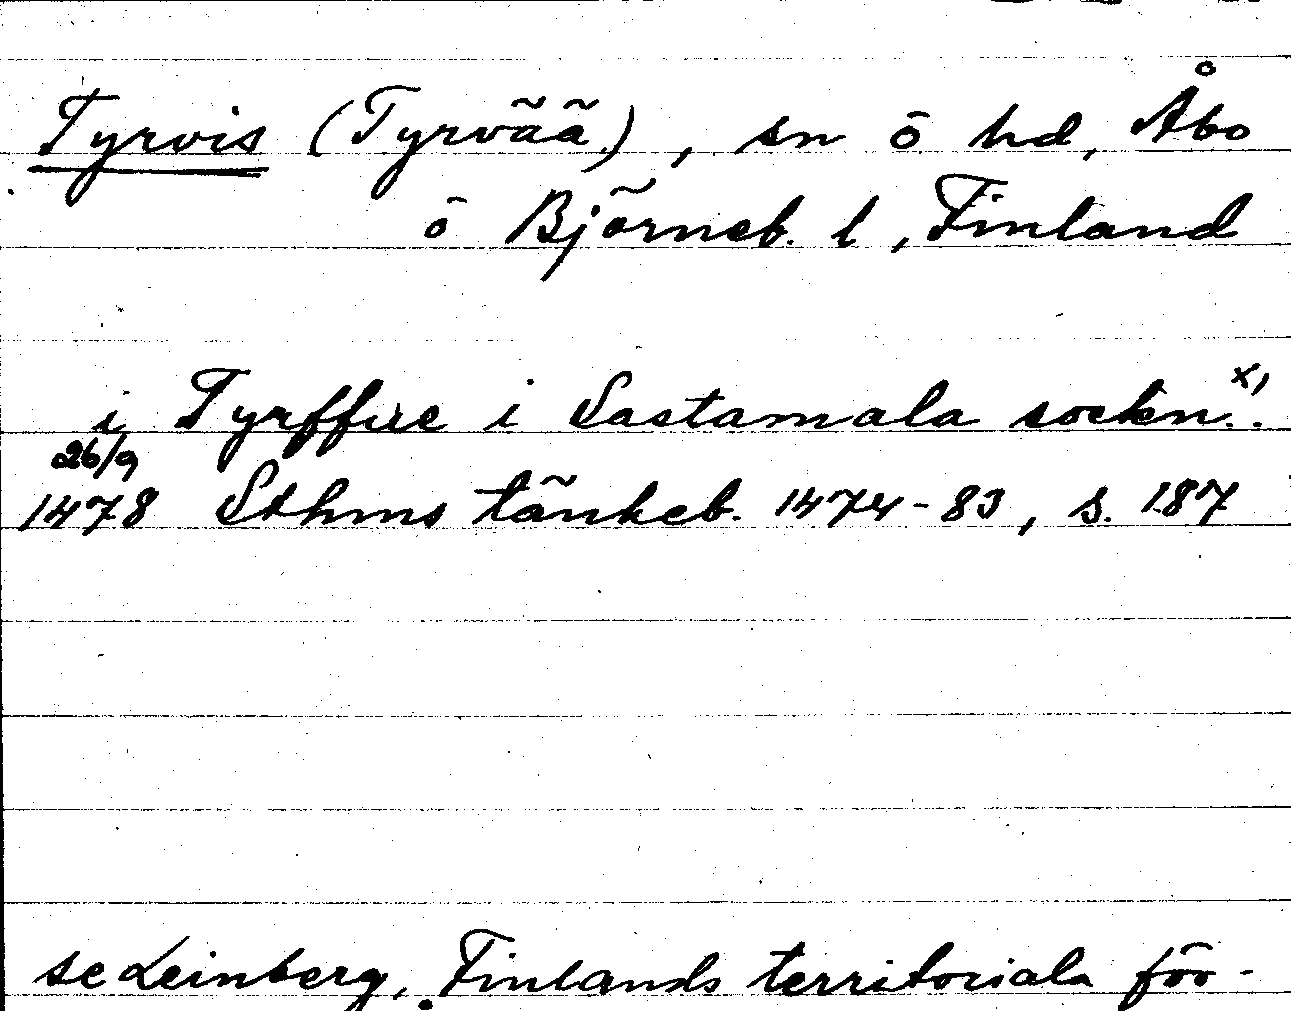 Tyrvis (Tyrvää), sn ö hd, Åbo
o Björneb. l, Finland
i Tyrffue i Sastamala sockn.x).
26/9
1478 Sthms tänkeb. 1474-83, s. 187
se Leinberg, Finlands territoriala för-